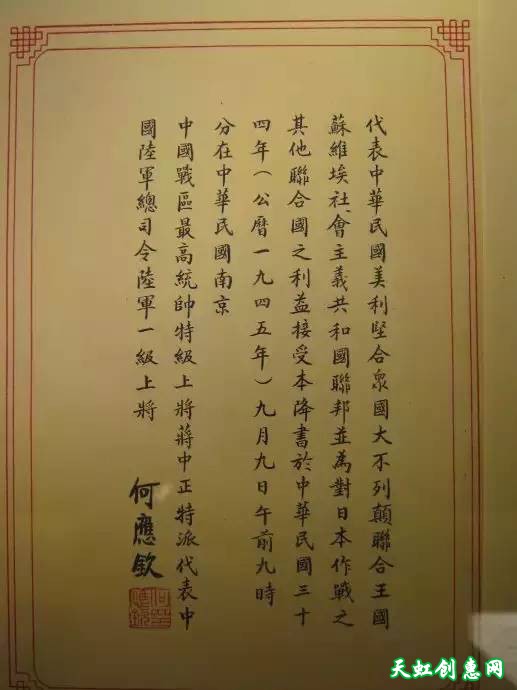 代表中華民國美利堅合衆國大不列顛聯合王國
蘇維埃社會主義共和國聯邦並為對日本作戰之
其他聯合國之利益接受本降書於中華民國三十
四年(公曆一九四五年)九月九日午前九時
分在中華民國南京
中國戰區最高統帥特級上將蔣中正特派代表中
國陸軍總司令陸軍一級上將
何應欽
何應欽印
天虹创惠网